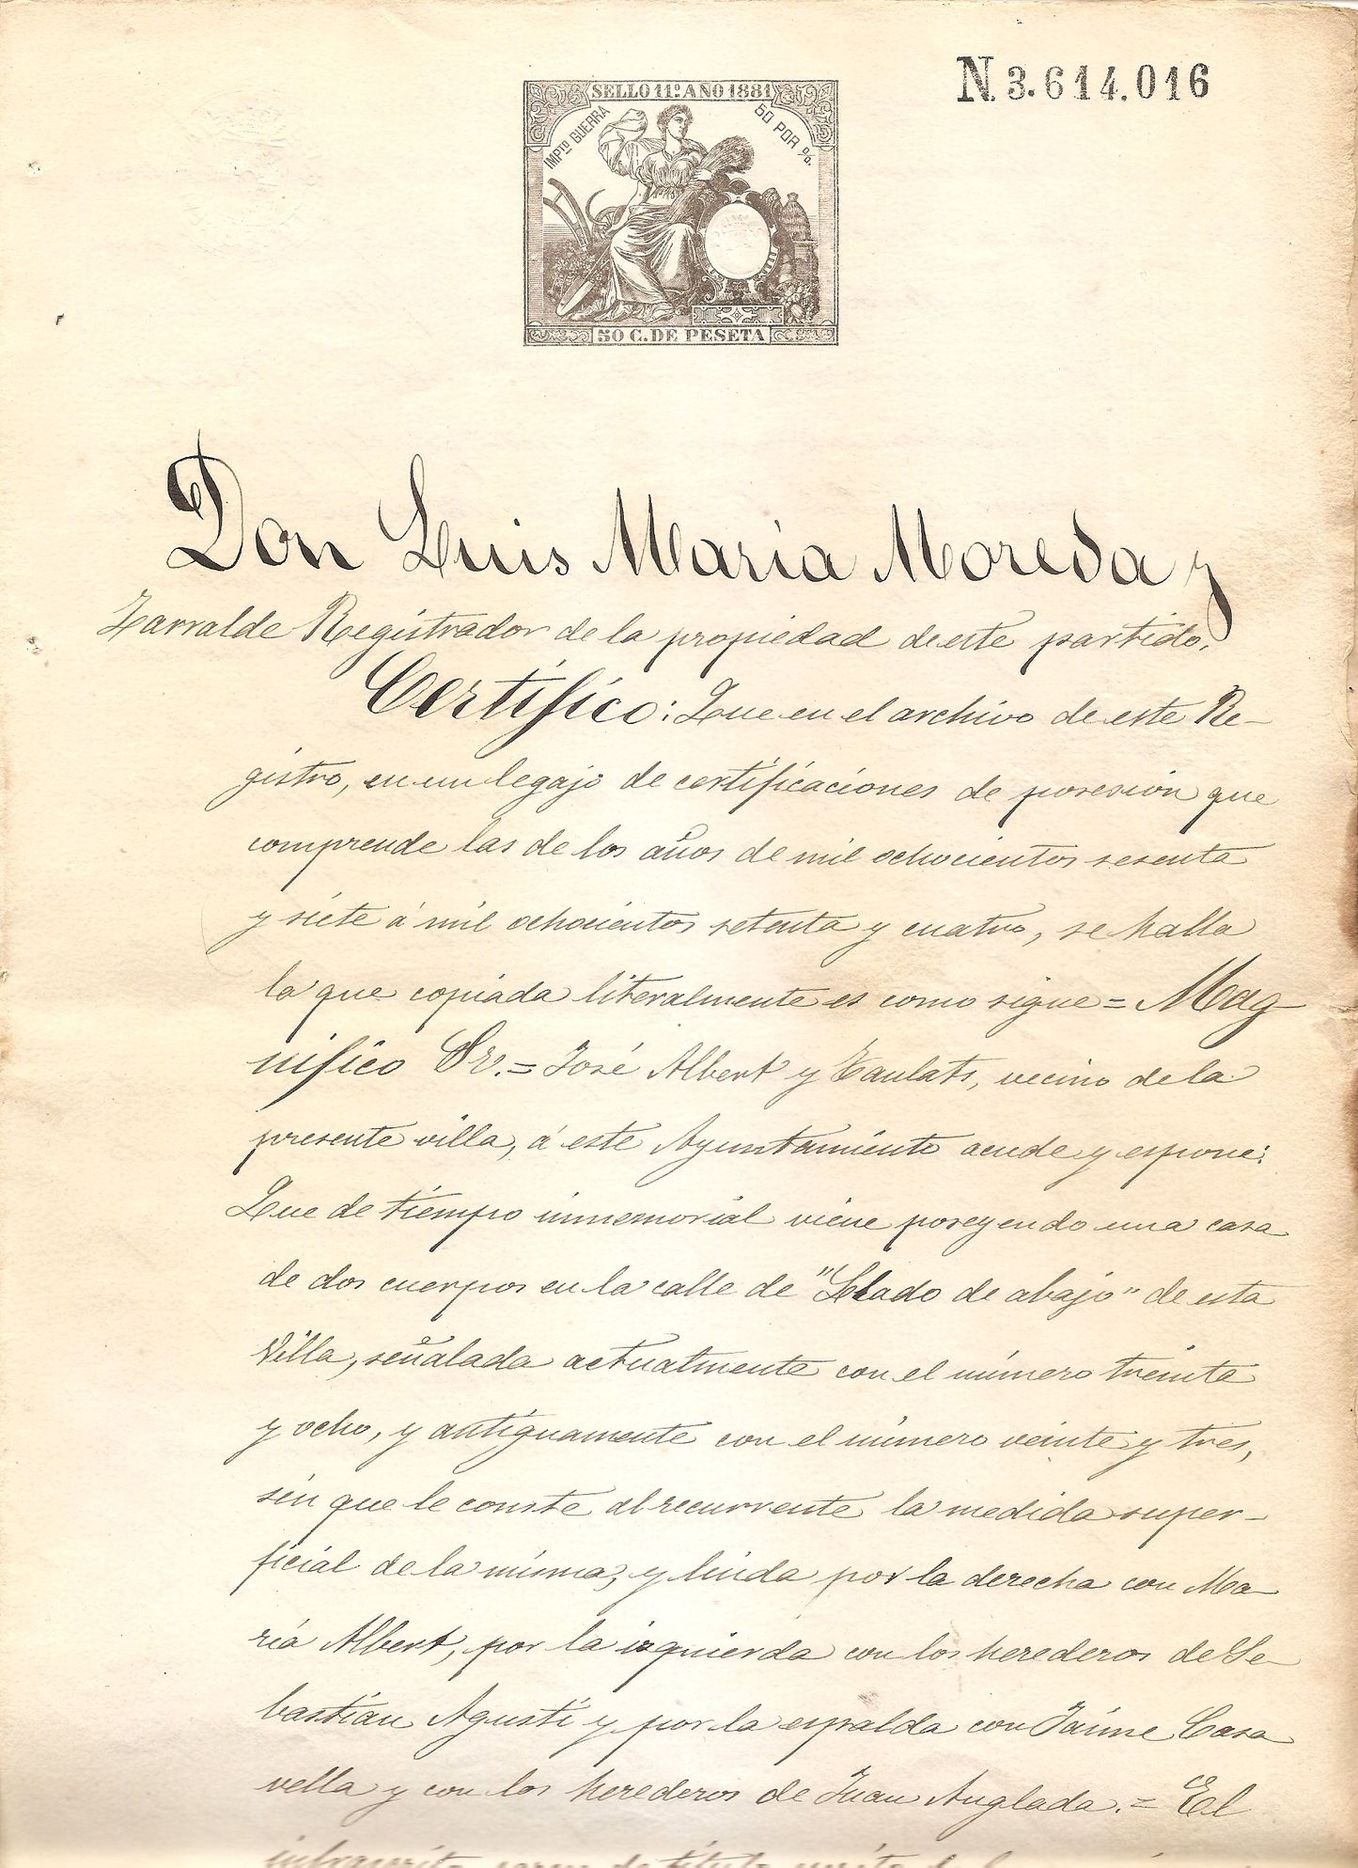 N. 3.614.016
SELLO 11º AÑO 1881
IMPTO GUERRA
50 POR %.
50 C. DE PESETA
Don Luis Maria Moreda y
Zarralde Registrador de la propiedad de este partido.
Certifico: Que en el archivo de este Re-
gistro, en un legajo de certificaciones de posesion que
comprende las de los años de mil ochocientos sesenta
y siete á mil ochocientos setenta y cuatro, se halla
la que copiada literalmente es como sigue = Mag-
nifico Sr. = José Albert y Taulats, vecino de la
presente villa, á este Ayuntamiento acude y espone:
Que de tiempo inmemorial viene poseyendo una casa
de dos cuerpos en la calle de "Llado de abajo" de esta
Villa, señalada actualmente con el número treinta
y ocho, y antiguamente con el número veinte y tres,
sin que le conste al recurrente la medida super-
ficial de la misma, y linda por la derecha con Ma-
ria Albert, por la izquierda con los herederos de Se-
bastian Agustí y por la espalda con Jaime Casa
vella y con los herederos de Juan Anglada. = El
infrascrito